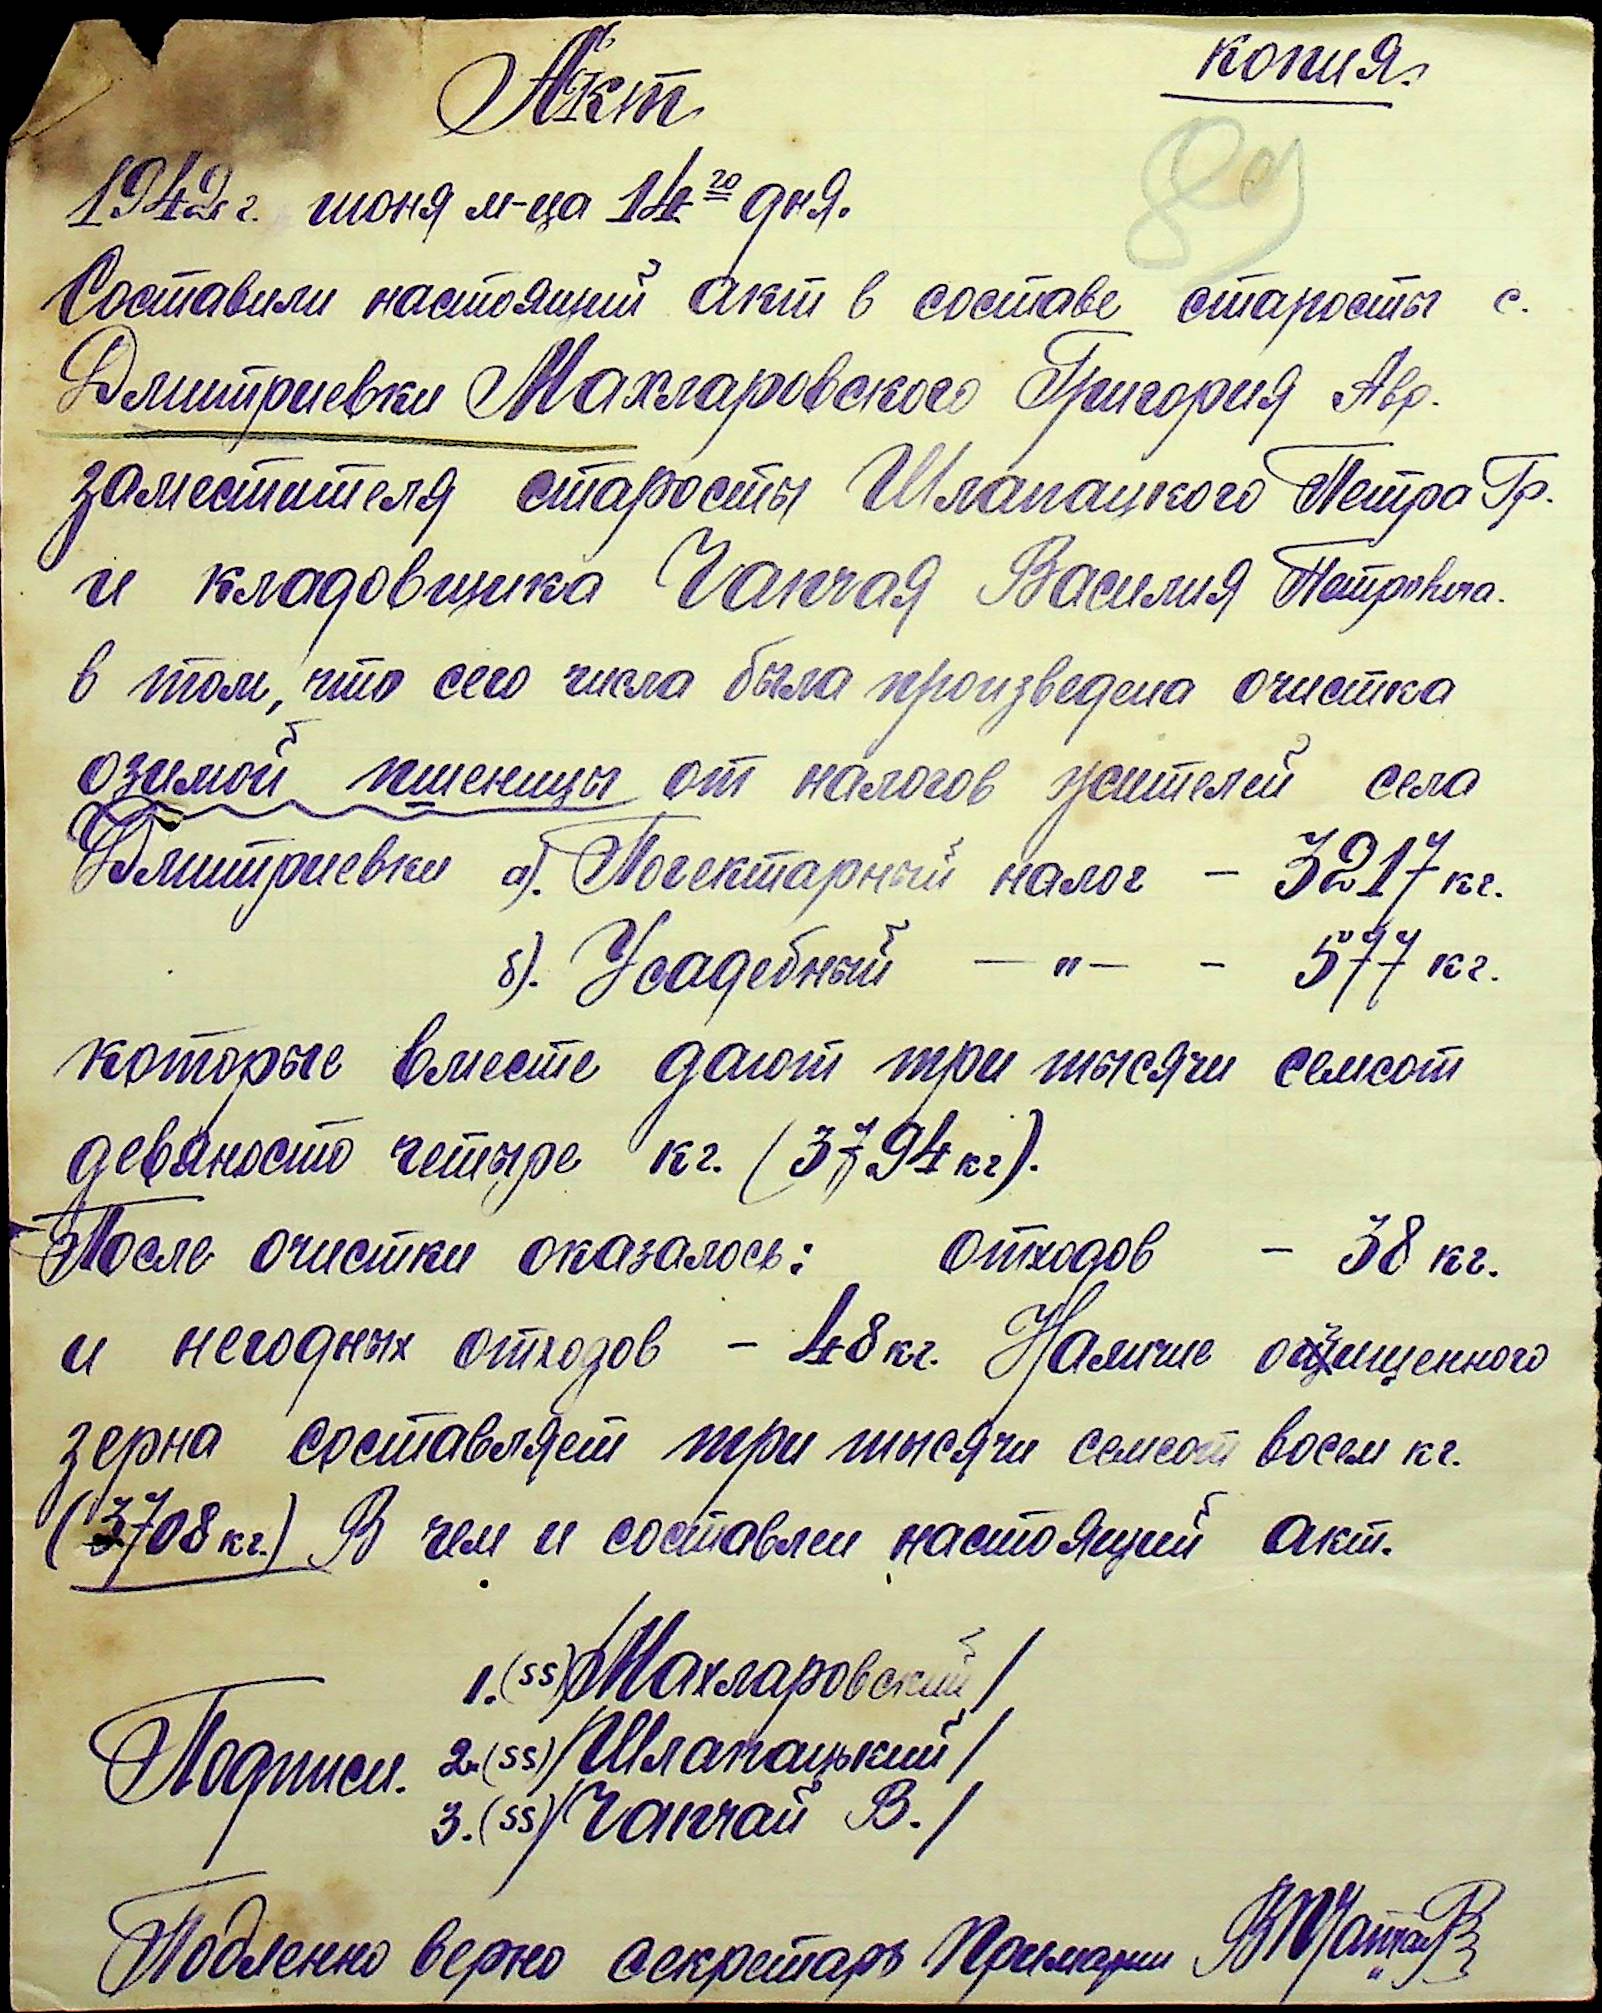 Акт
копия.
89
1942 г. июня м-ца 14го дня.
Составили настоящий акт в составе старосты с.
Дмитриевки Махларовского Григория Авр.
заместителя старосты Шлапацкого Петра Гр.
и кладовщика Чапчая Василия Петровича.
в том, что сего числа была произведена очистка
озимой пшеницы от налогов жителей села
Дмитриевки а). Погектарный налог – 3217 кг.
б). Усадебный — „ — - 577 кг.
которые вместе дают три тысячи семсот
девяносто четыре кг. (3794 кг).
После очистки оказалось: отходов – 38 кг.
и негодных отходов – 48 кг. Наличие очищенного
зерна составляет три тысячи семсот восем кг.
(3708 кг.) В чем и составлен настоящий акт.
1. (ss) /Махларовский/
Подписи. 2. (ss) /Шлапацький/
3. (ss) /Чапчай В./
Подленно верно секретарь Примарии